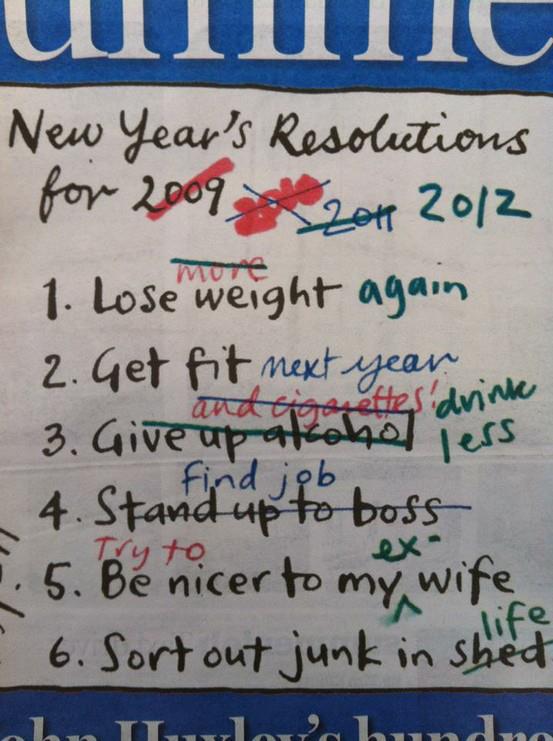 New Year's Resolutions
for 2009 2010 2011 2012
more
1. Lose weight again
2. Get fit next year
and cigarettes! drink
3. Give up alcohol less
find job
4. Stand up to boss
Try to ex-
5. Be nicer to my wife
life
6. Sort out junk in shed
ohn Huxley's hundre